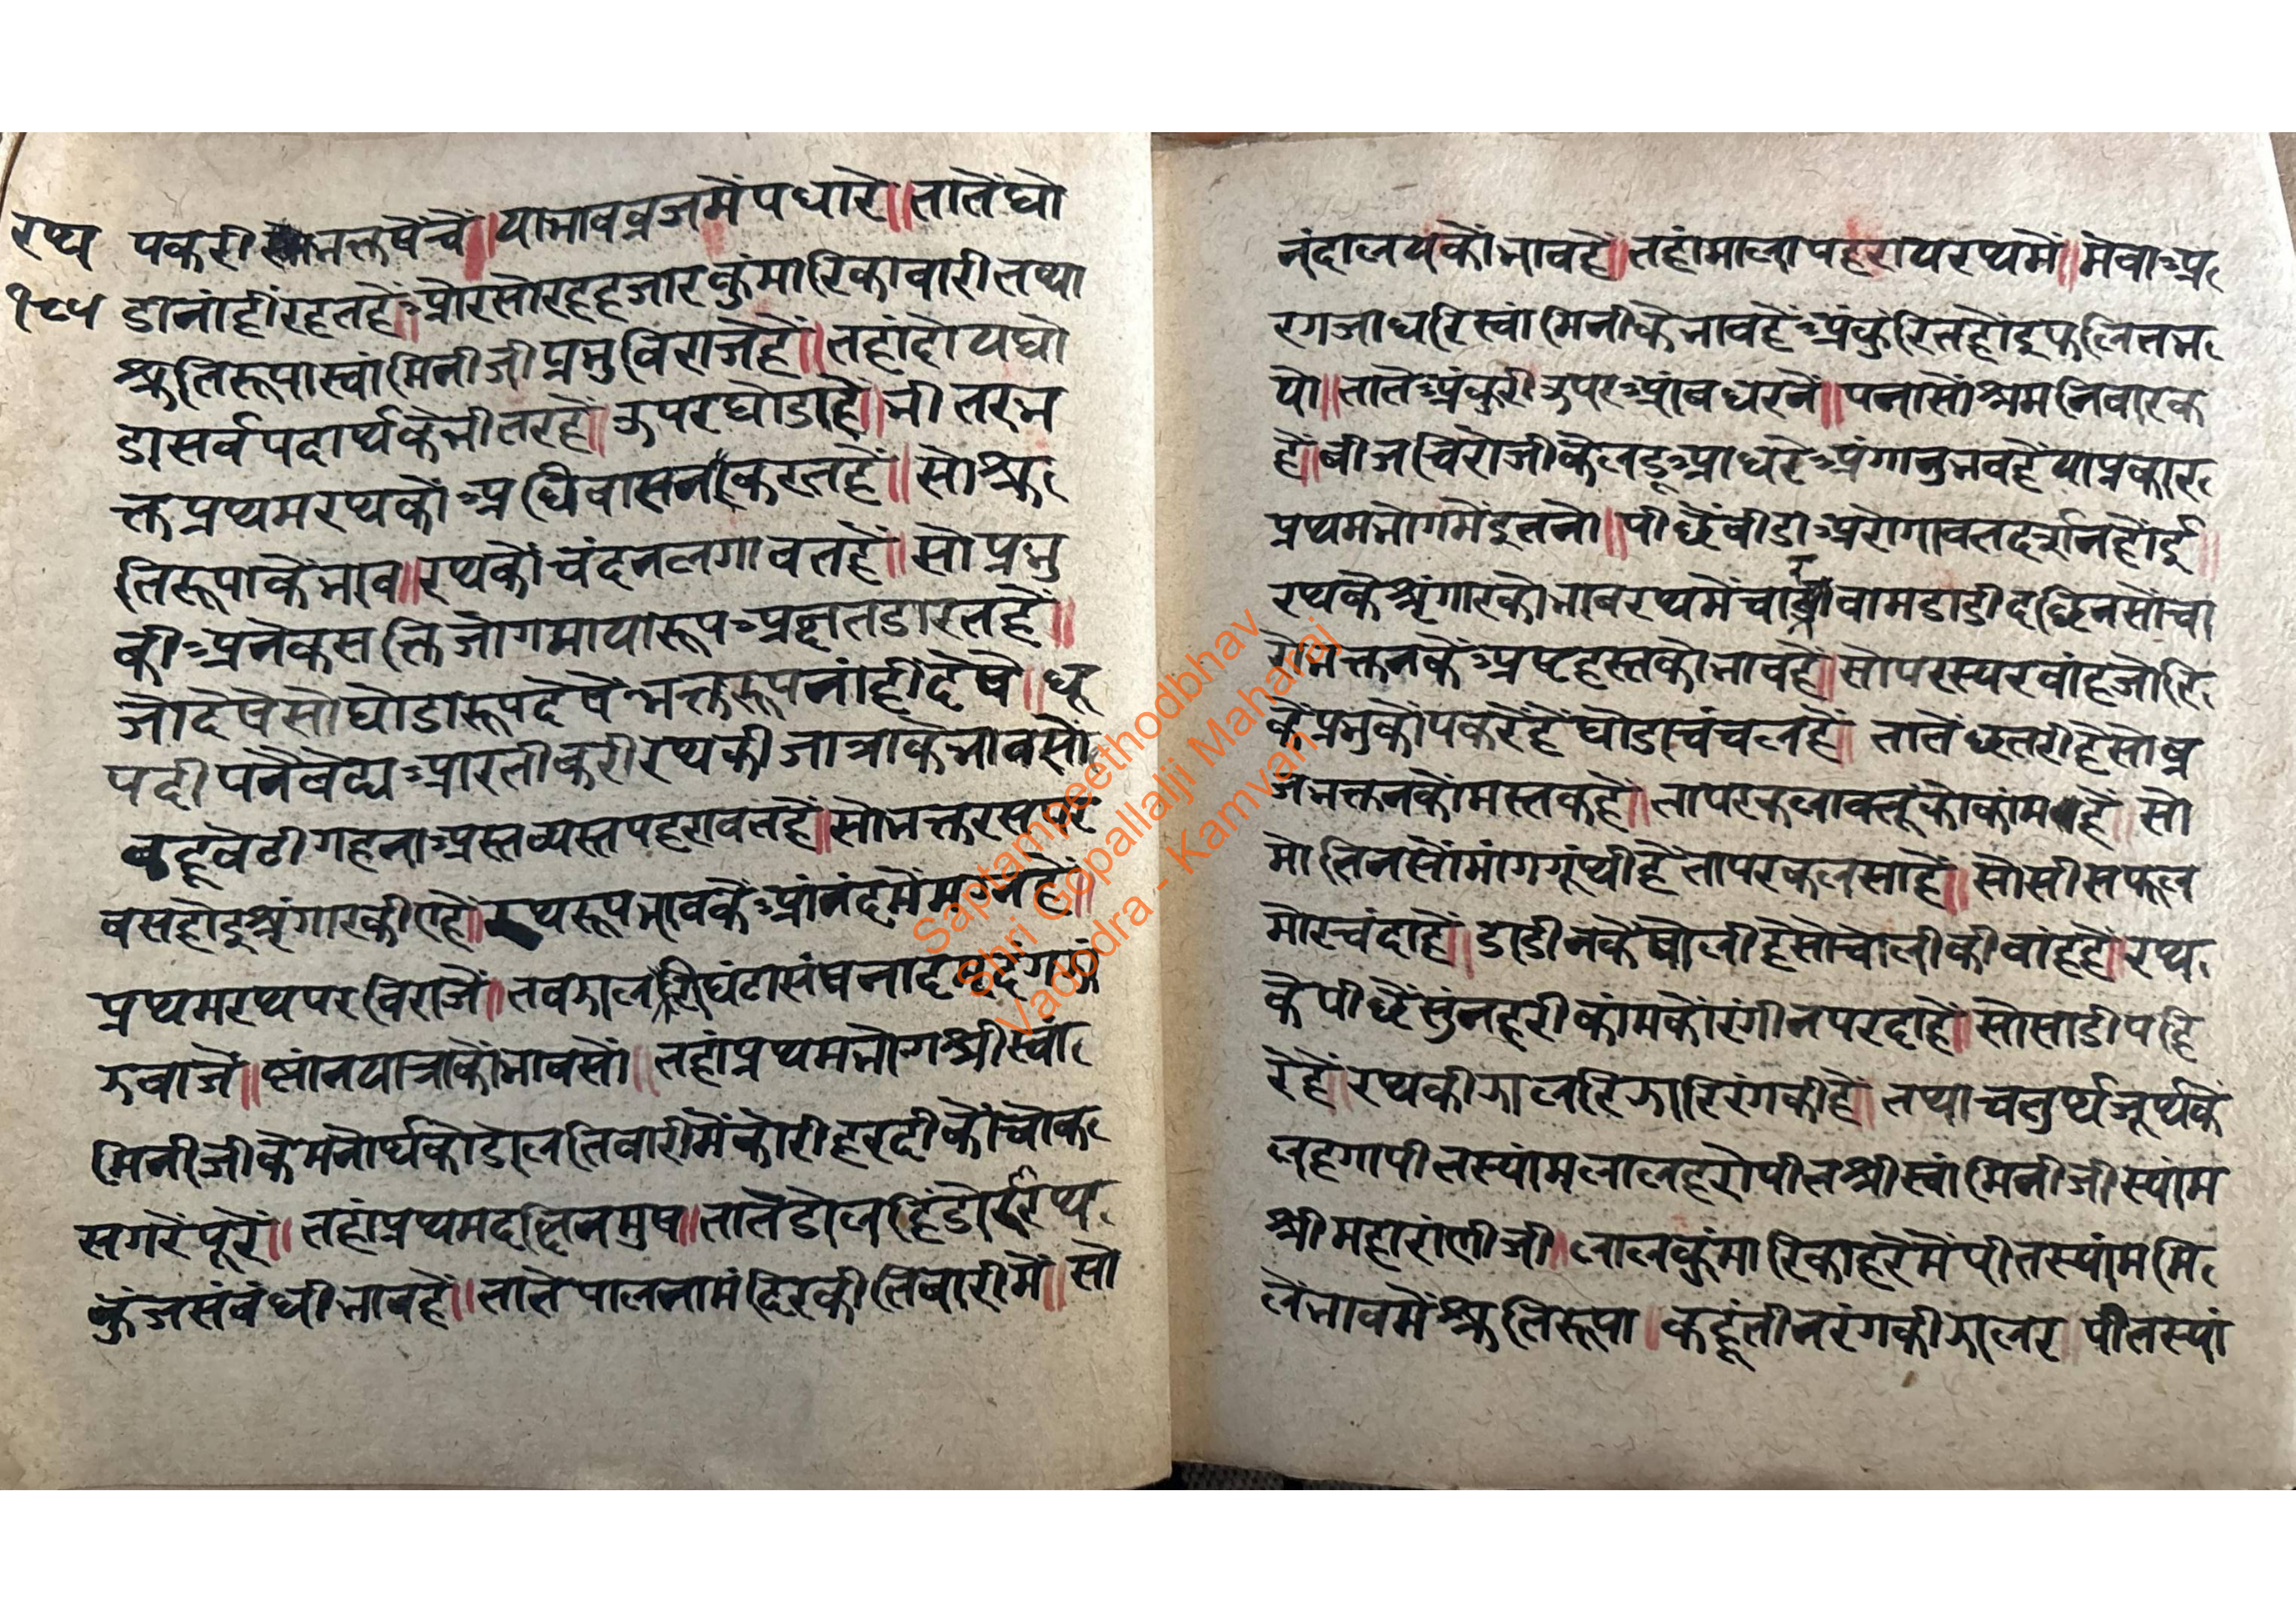 रथ
१८५
पकरी भक्तषेंचें॥याभावव्रजमेंपधारे॥तातेंघो
डानांहींरहतहें॥औरसोरहहजारकुंमारिकावारीतथा
श्रुतिरूपास्वांमिनीजीप्रभुविराजेहें॥तहांदोयघो
डासर्वपदार्थकेभीतरहें॥ऊपरघोडाहें॥भीतरभ
क्तप्रथमरथकोंअधिवासनकरतहें॥सोश्रु
तिरूपाकेंभाव॥रथकोंचंदनलगावतहें॥सोप्रभु
कीअनेकसक्तिजोगमायारूपअक्षतडारतहें॥
जोदेषेसोघोडारूपदेषेंभक्तरूपनांहींदेषे॥धू
पदीपनैवेद्यआरतीकरीरथकीजात्राकेभावसों
कहूवेटीगहनाअस्तव्यस्तपहरावतहें॥सोभक्तरसपर
वसहोइश्रृंगारकीएहें॥रथरूपभावकेंआंनंदमेंमग्नहें॥
प्रथमरथपरविराजें॥तवझालरिघंटासंषनादमृदंगझां
झवाजें॥स्नांनयात्राकोंभावसों॥तहांप्रथमभोगश्रीस्वां
मिनीजीकेमनोर्थकोडोलतिवारीमेंकोरीहरदीकोंचोक
सगरेंपूरें॥तहांप्रथमदछिनमुष॥तातेंडोलहिंडोरारथ
कुंजसंबंधीभावहें॥तातेपालनामंदिरकीतिवारीमें॥सो
नंदालयकोंभावहें॥तहांमालापहरायरथमें॥मेवाअ
रगजाधरिस्वांमिनीकेभावहेंअंकुंरितहोइफलितभ
यो॥तातेअंकुरीऊपरआंवधरनें॥पनासोंश्रमनिवारक
हें॥वीजचिरोंजीकेलडूआधरेअंगानुभवहेंयाप्रकार
प्रथमभोगमेंइतनो॥पीछेंवीडाअरोगावतदर्शनहोंई॥
रथकेश्रृंगारकोभावरथमेंचारवामडाडीदछिनसोंचा
रोंभक्तनकेंअष्टहस्तकोभावहें॥सोपरस्परवांहजोरि
केंप्रभुकोंपकरेंहेंघोडाचंचलहें॥तातेंछतरीहेंसोव्र
जभक्तनकोंमस्तकहें॥तापरकलावत्तूकोकांमहें॥सो
मोतिनसोंमांगगूंथीहेंतापरकलसाहें॥सोसीसफूल
मोरचंदाहें॥डाडीनकेंषोलीहेंसोचोलीकीवांहहें॥रथ
केपीछेंसुंनहरीकांमकोंरंगीनपरदाहें॥सोसाडीपहि
रेंहें॥रथकीझालरिझारिरंगकीहें॥तथाचतुर्थजूर्थकें
लहगापीतस्यांमलालहरोपीतश्रीस्वांमिनीजीस्यांम
श्रीमहारांणीजी॥लालकुंमारिकाहरेमेंपीतस्यांममि
लेंभावमेंश्रुतिरूपा॥कहूंतीनरंगकीझालर॥पीतस्यां
Saptampeethodbhav
Shri Gopallalji Maharaj
Vadodra - Kamvan